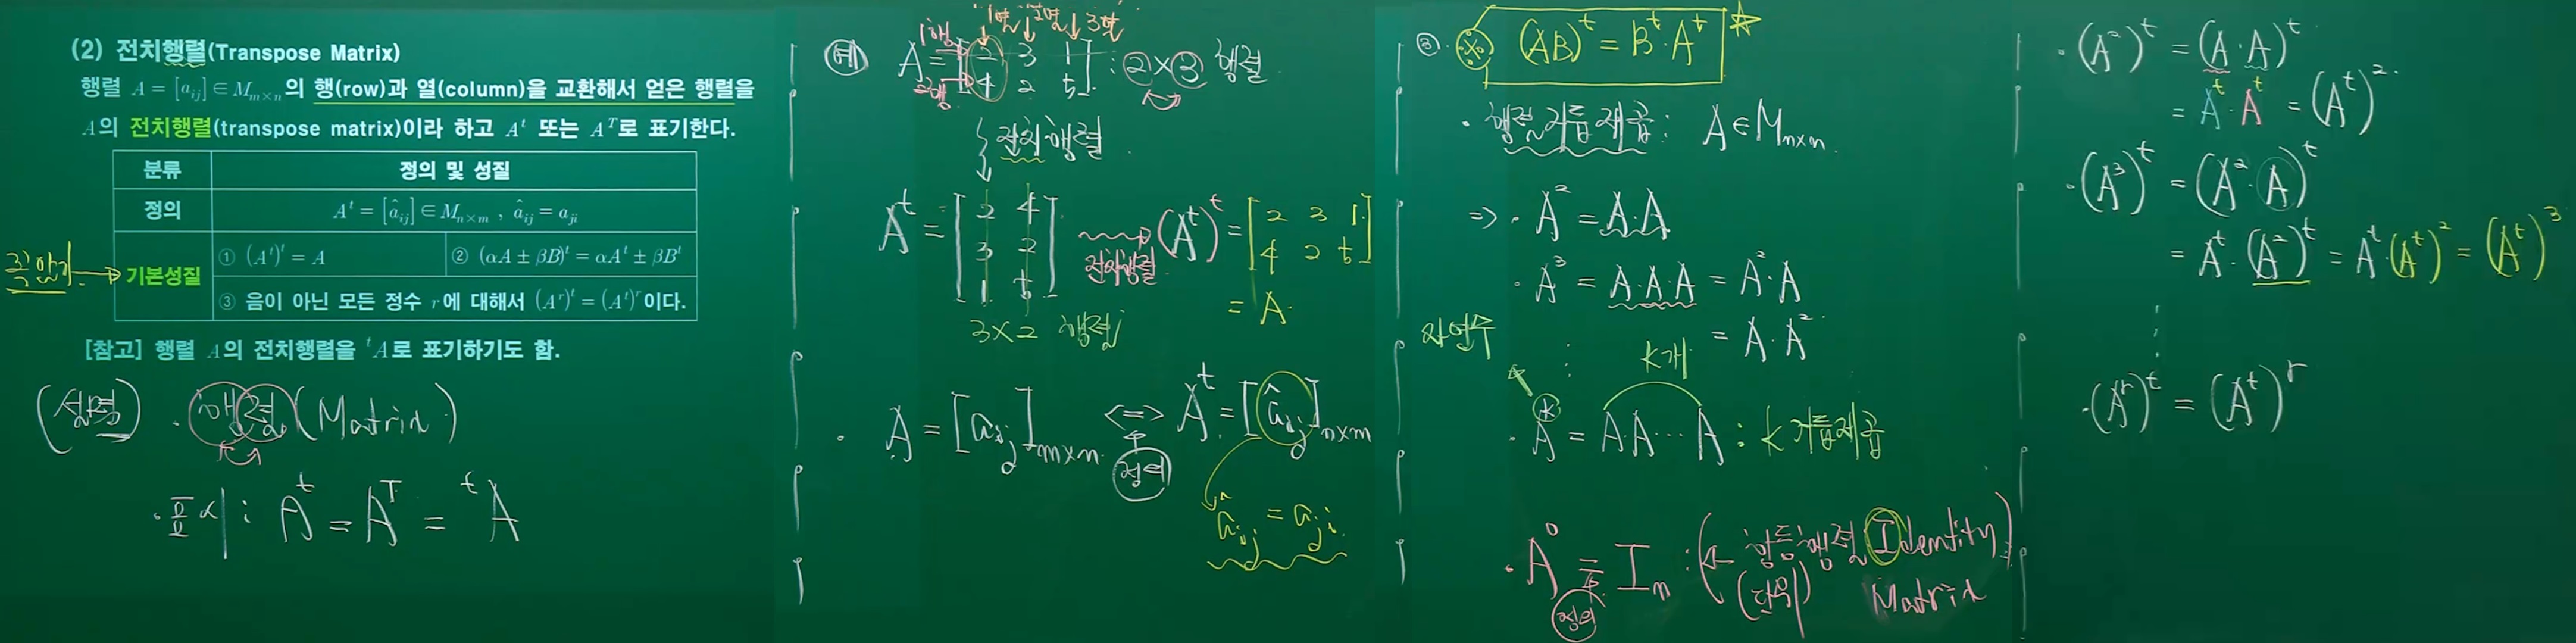 (2) 전치행렬(Transpose Matrix)
행렬 A = [a_{ij}] ∈ M_{m×n}의 행(row)과 열(column)을 교환해서 얻은 행렬을
A의 전치행렬(transpose matrix)이라 하고 A^t 또는 A^T로 표기한다.
분류 정의 및 성질
정의 A^t = [â_{ij}] ∈ M_{n×m} , â_{ij} = a_{ji}
꼭 암기 → 기본성질
① (A^t)^t = A ② (αA ± βB)^t = αA^t ± βB^t
③ 음이 아닌 모든 정수 r에 대해서 (A^r)^t = (A^t)^r이다.
[참고] 행렬 A의 전치행렬을 ^tA로 표기하기도 함.
(설명) · 행렬 (Matrix)
· 표시 : A^t = A^T = ^tA
1열 2열 3열
예 1행 2행 A = [2 3 1 / 4 2 5] : 2×3 행렬
전치행렬
A^t = [2 4 / 3 2 / 1 5] 전치행렬 (A^t)^t = [2 3 1 / 4 2 5]
3×2 행렬 = A
· A = [a_{ij}]_{m×n} <=> 정의 A^t = [â_{ij}]_{n×m}
â_{ij} = a_{ji}
③ ※ (AB)^t = B^t · A^t ☆
· 행렬 거듭제곱 : A ∈ M_{n×n}
=> · A^2 = A·A
· A^3 = A·A·A = A^2·A
= A·A^2
자연수 ⋮ k개
· A^k = A·A···A : k 거듭제곱
· A^0 = I_n : (← 항등행렬 Identity
정의 (단위) Matrix
· (A^2)^t = (A·A)^t
= A^t · A^t = (A^t)^2
· (A^3)^t = (A^2·A)^t
= A^t · (A^2)^t = A^t · (A^t)^2 = (A^t)^3
⋮
· (A^r)^t = (A^t)^r